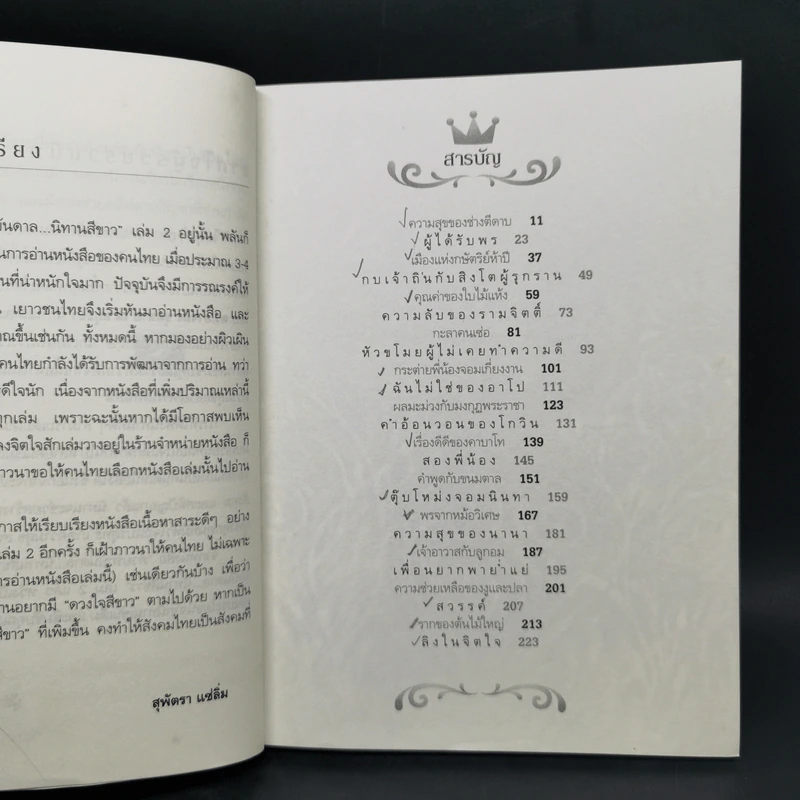 รียง
บันดาล...นิทานสีขาว" เล่ม 2 อยู่นั้น พลันก็
นการอ่านหนังสือของคนไทย เมื่อประมาณ 3-4
นที่น่าหนักใจมาก ปัจจุบันจึงมีการรณรงค์ให้
น เยาวชนไทยจึงเริ่มหันมาอ่านหนังสือ และ
าณขึ้นเช่นกัน ทั้งหมดนี้ หากมองอย่างผิวเผิน
คนไทยกำลังได้รับการพัฒนาจากการอ่าน ทว่า
รดีใจนัก เนื่องจากหนังสือที่เพิ่มปริมาณเหล่านี้
ทุกเล่ม เพราะฉะนั้นหากได้มีโอกาสพบเห็น
ลงจิตใจสักเล่มวางอยู่ในร้านจำหน่ายหนังสือ ก็
าวนาขอให้คนไทยเลือกหนังสือเล่มนั้นไปอ่าน
กาสให้เรียบเรียงหนังสือเนื้อหาสาระดีๆ อย่าง
เล่ม 2 อีกครั้ง ก็เฝ้าภาวนาให้คนไทย ไม่เฉพาะ
ารอ่านหนังสือเล่มนี้) เช่นเดียวกันบ้าง เพื่อว่า
านอยากมี "ดวงใจสีขาว" ตามไปด้วย หากเป็น
สีขาว" ที่เพิ่มขึ้น คงทำให้สังคมไทยเป็นสังคมที่
สุพัตรา แซ่ลิ่ม
สารบัญ
ความสุขของช่างตีดาบ 11
ผู้ได้รับพร 23
เมืองแห่งกษัตริย์ห้าปี 37
กบเจ้าถิ่นกับสิงโตผู้รุกราน 49
คุณค่าของใบไม้แห้ง 59
ความลับของรามจิตตี้ 73
กะลาคนเซ่อ 81
หัวขโมยผู้ไม่เคยทำความดี 93
กระต่ายพี่น้องจอมเกี่ยงงาน 101
ฉันไม่ใช่ของอาโป 111
ผลมะม่วงกับมงกุฎพระราชา 123
คำอ้อนวอนของโกวิน 131
เรื่องดีดีของคาบาโท 139
สองพี่น้อง 145
คำพูดกับขนมตาล 151
ตุ๊บโหม่งจอมนินทา 159
พรจากหม้อวิเศษ 167
ความสุขของนานา 181
เจ้าอาวาสกับลูกอม 187
เพื่อนยากพาย่ำแย่ 195
ความช่วยเหลือของงูและปลา 201
สวรรค์ 207
รากของต้นไม้ใหญ่ 213
ลิงในจิตใจ 223